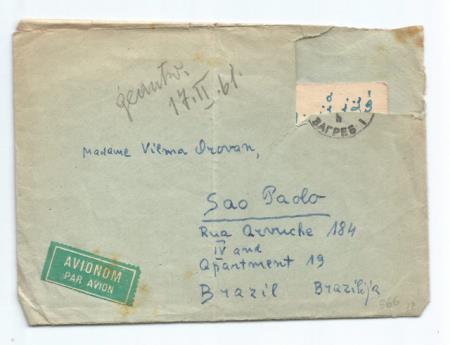 17.II.61.
ЗАГРЕБ 1
Madame Vilma Orovan,
Sao Paolo
Rua Arouche 184
IV and
Apartment 19
Brazil Brazilija
AVIONOM
PAR AVION